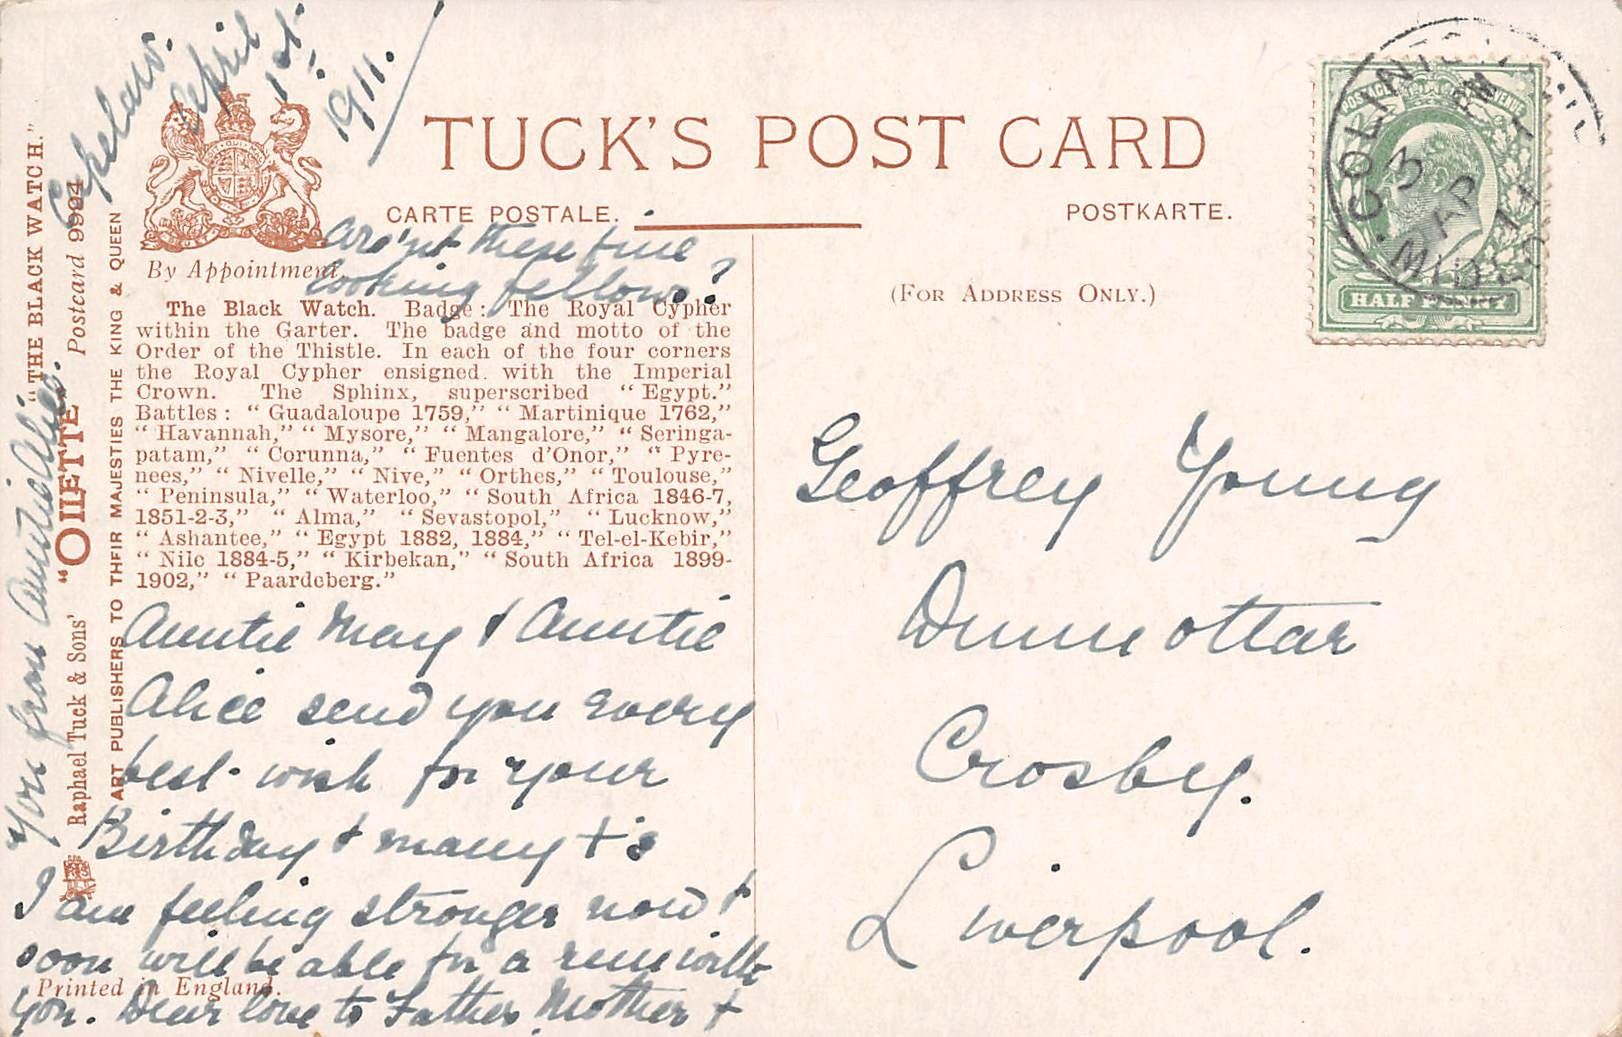 Capelaw.
April
1st.
1911.
TUCK'S POST CARD
CARTE POSTALE.
POSTKARTE.
By Appointment.
(FOR ADDRESS ONLY.)
Are'nt these fine
looking fellows?
The Black Watch. Badge: The Royal Cypher
within the Garter. The badge and motto of the
Order of the Thistle. In each of the four corners
the Royal Cypher ensigned with the Imperial
Crown. The Sphinx, superscribed "Egypt."
Battles: "Guadaloupe 1759," "Martinique 1762,"
"Havannah," "Mysore," "Mangalore," "Seringa-
patam," "Corunna," "Fuentes d'Onor," "Pyre-
nees," "Nivelle," "Nive," "Orthes," "Toulouse,"
"Peninsula," "Waterloo," "South Africa 1846-7,
1851-2-3," "Alma," "Sevastopol," "Lucknow,"
"Ashantee," "Egypt 1882, 1884," "Tel-el-Kebir,"
"Nile 1884-5," "Kirbekan," "South Africa 1899-
1902," "Paardeberg."
Auntie May & Auntie
Alice send you every
best wish for your
Birthday & many +'s
I am feeling stronger now &
soon will be able for a run with
you. Dear love to Father Mother &
You from Auntie Alice.
Printed in England.
"THE BLACK WATCH."
Raphael Tuck & Sons' "OILETTE" Postcard 9994
ART PUBLISHERS TO THEIR MAJESTIES THE KING & QUEEN
Geoffrey Young
Dunnottar
Crosby.
Liverpool.
POSTAGE REVENUE
HALF PENNY
COLINTON
PM
3
AP
11